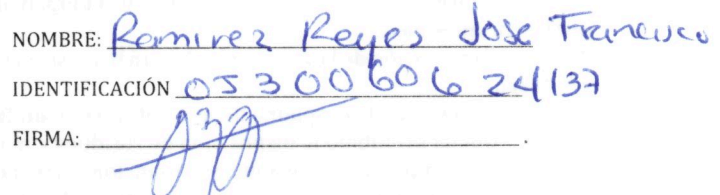 NOMBRE: Ramirez Reyes Jose Francisco
IDENTIFICACIÓN 0530060624137
FIRMA: .